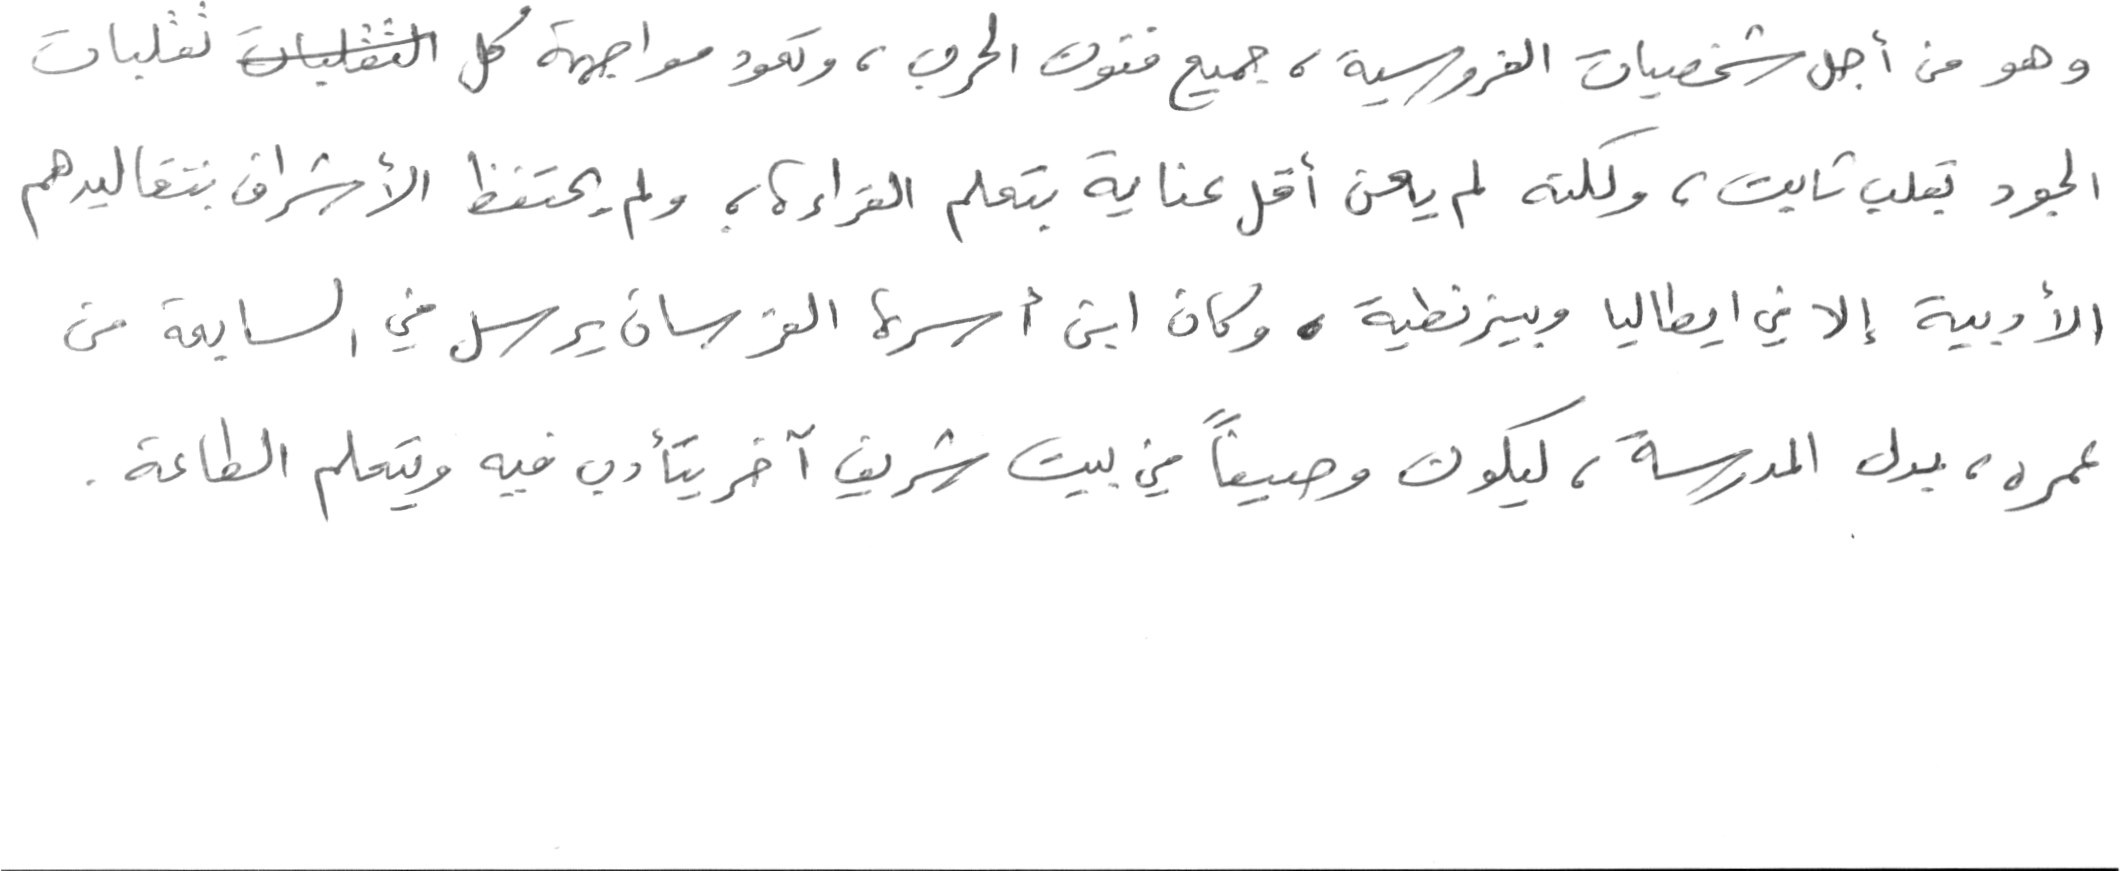 وهو من أجل شخصيات الفروسية، جميع فنون الحرب، وتعود مواجهة كل التقلبات تقلبات
الجود بقلب ثابت، ولكنه لم يعن أقل عناية بتعلم القراءة؛ ولم يحتفظ الأشراف بتقاليدهم
الأدبية إلا في ايطاليا وبيزنطية. وكان ابن أسرة الفرسان يرسل في السابعة من
عمره، بدل المدرسة، ليكون وصيفاً في بيت شريف آخر يتأدب فيه ويتعلم الطاعة.